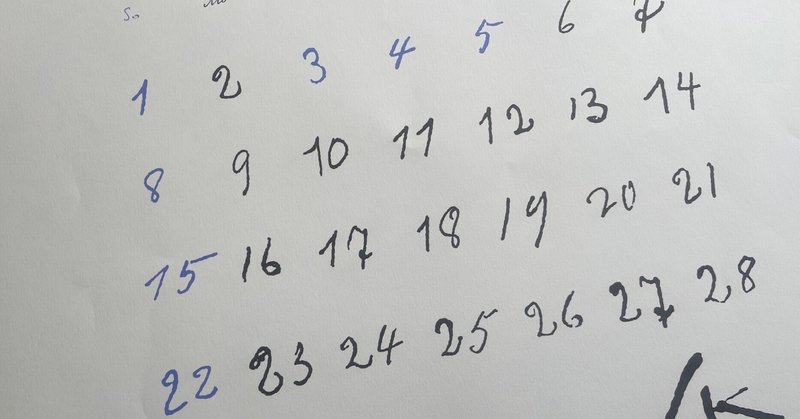 So
1 2 3 4 5 6 7
8 9 10 11 12 13 14
15 16 17 18 19 20 21
22 23 24 25 26 27 28